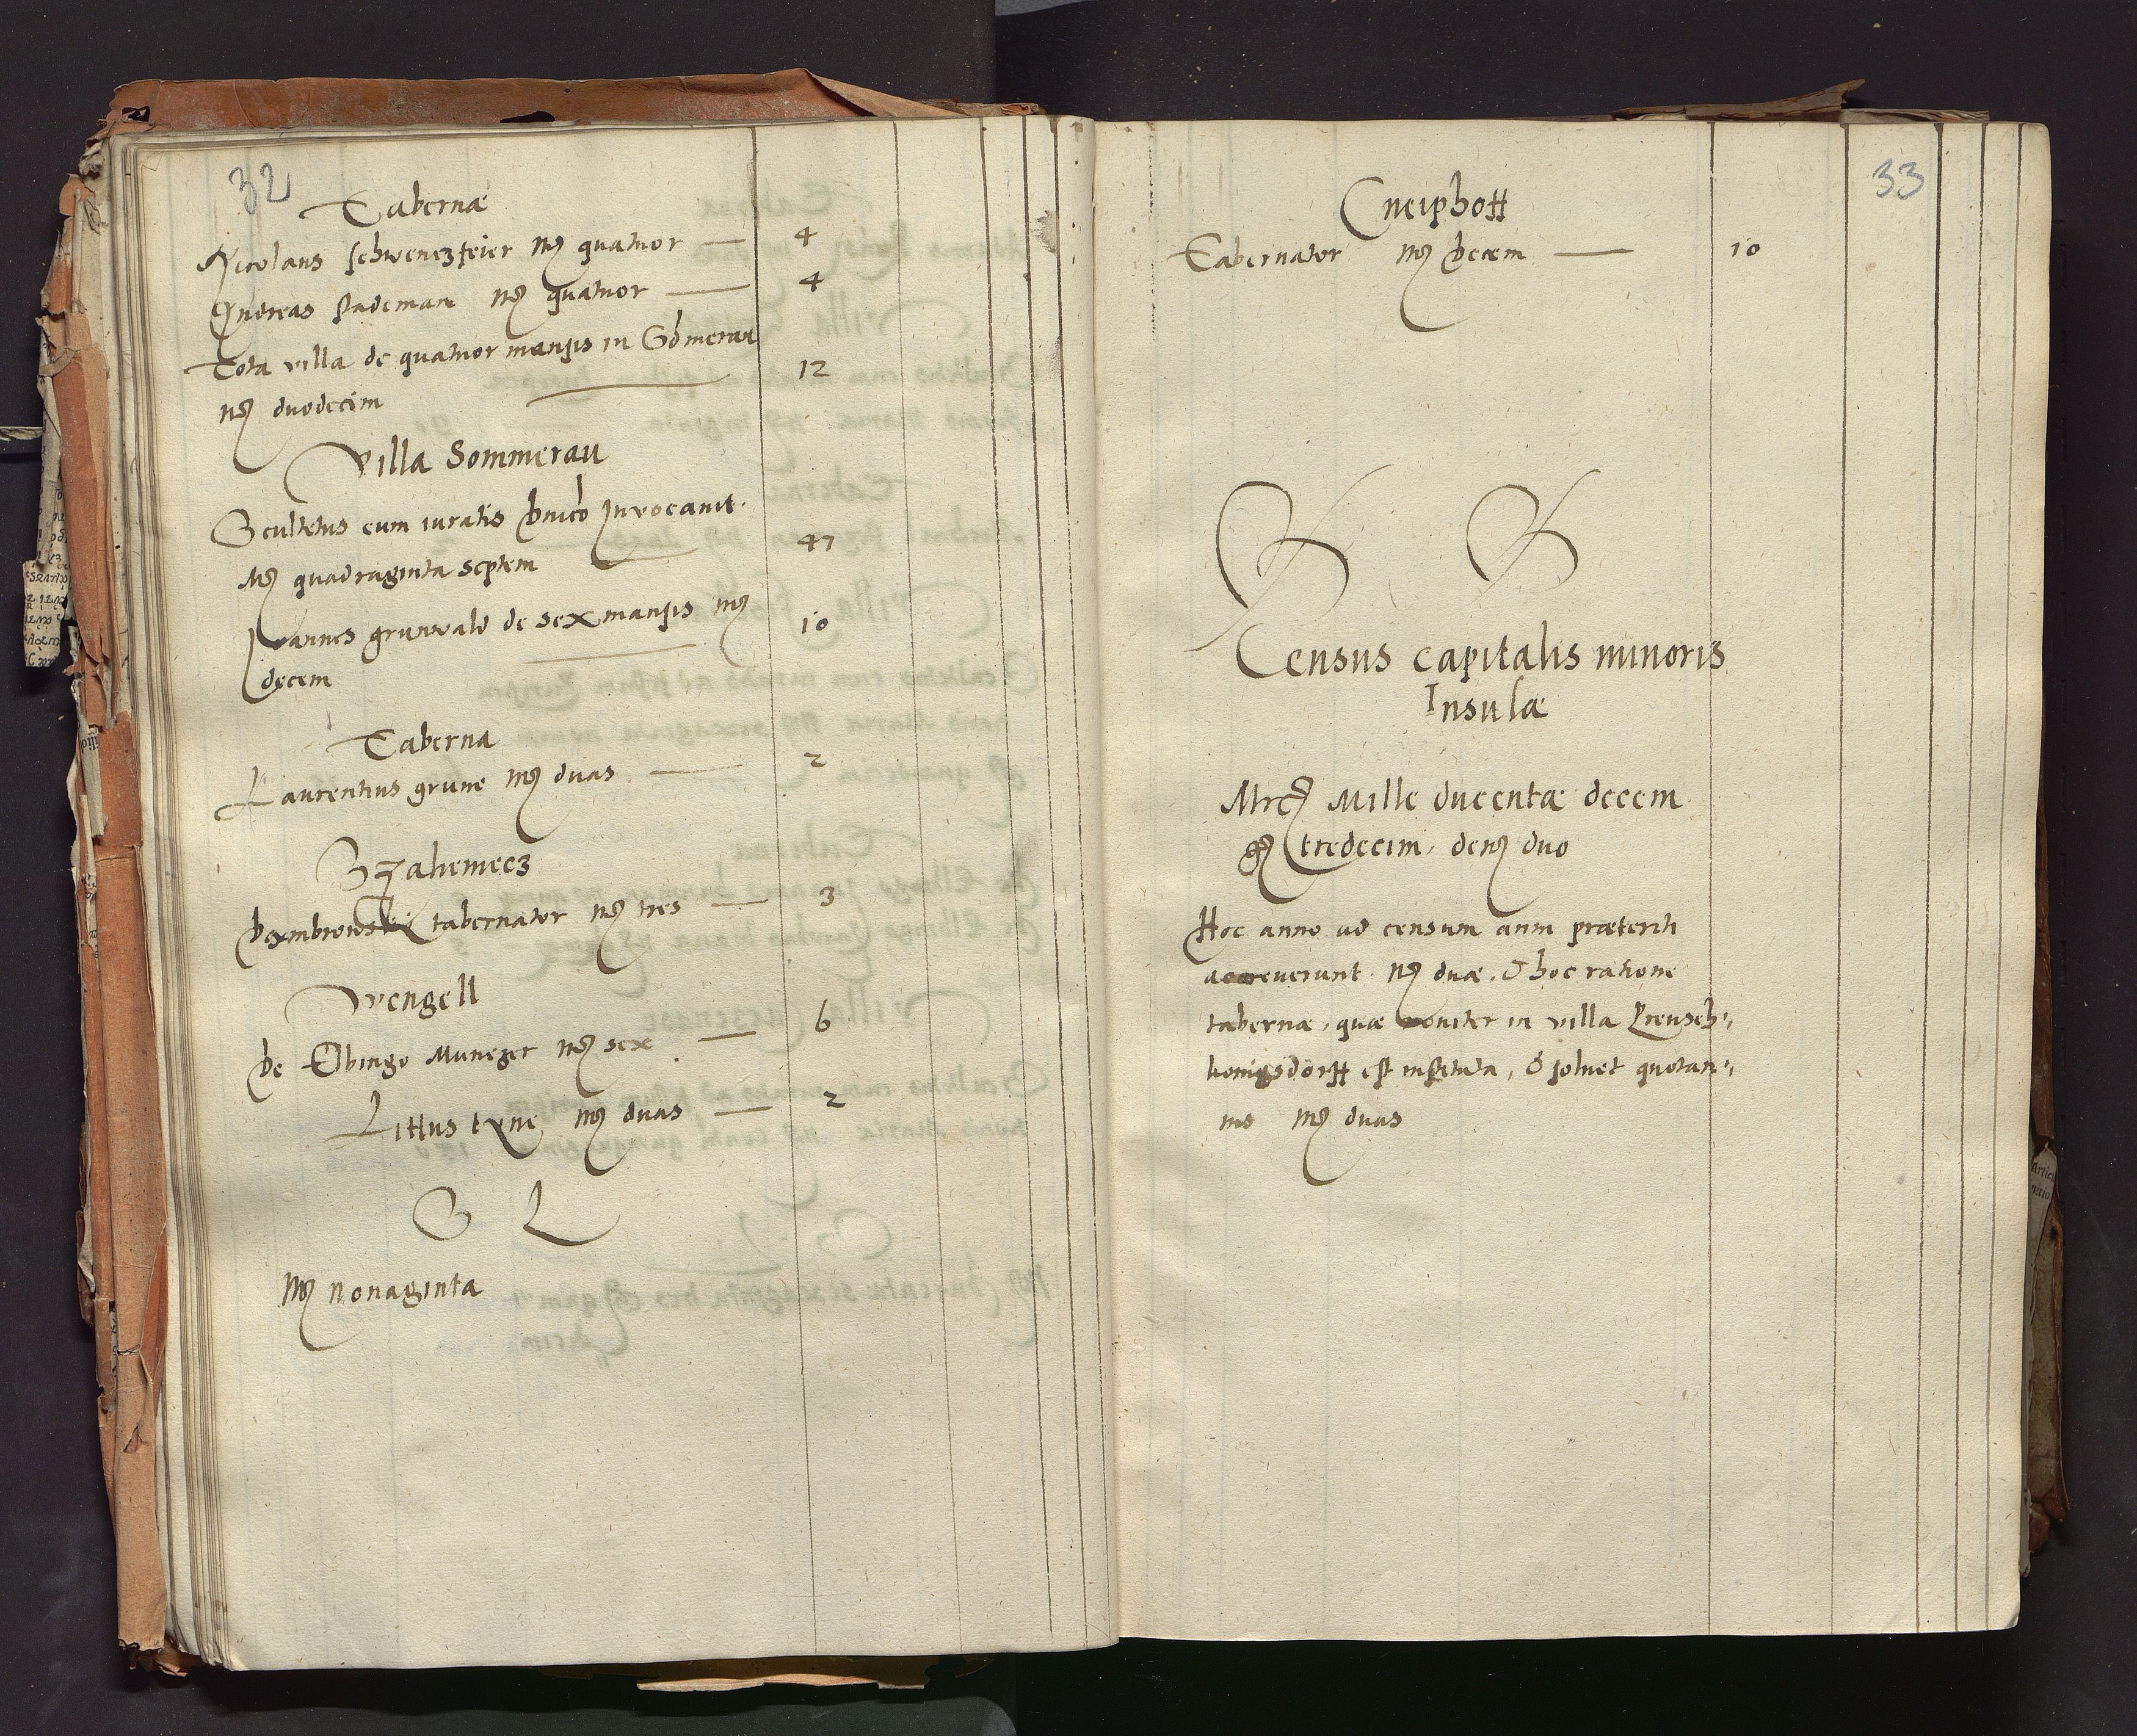 32
Tabernæ
Nicolaus schwenczfeier mr quatuor — 4
Andreas stademan mr quatuor — 4
Tota villa de quatuor mansis in Sdmerau
mr duodecim — 12
Villa Sommerau
Scultetus cum iuratis dnico Invocavit
Mr quadraginta septem — 47
Joannes grunwald de sex mansis mr
decem — 10
Taberna
Laurentius grune mr duas — 2
tabernator mr tres — 3
Wengell
de Elbingo Munczer mr sex — 6
Littus tyne mr duas — 2
S L
mr nonaginta
33
Cneiphoff
Tabernator mr decem — 10
Census capitalis minoris
Insulæ
Mrc Mille ducentæ decem
gr tredecim, den duo
Hoc anno ad censum anni præteriti
accreverunt mr duæ, & hoc ratione
tabernæ, quæ noviter in villa Preusch,,
konigsdorff est instituta, & solvet quotan,,
nis mr duas